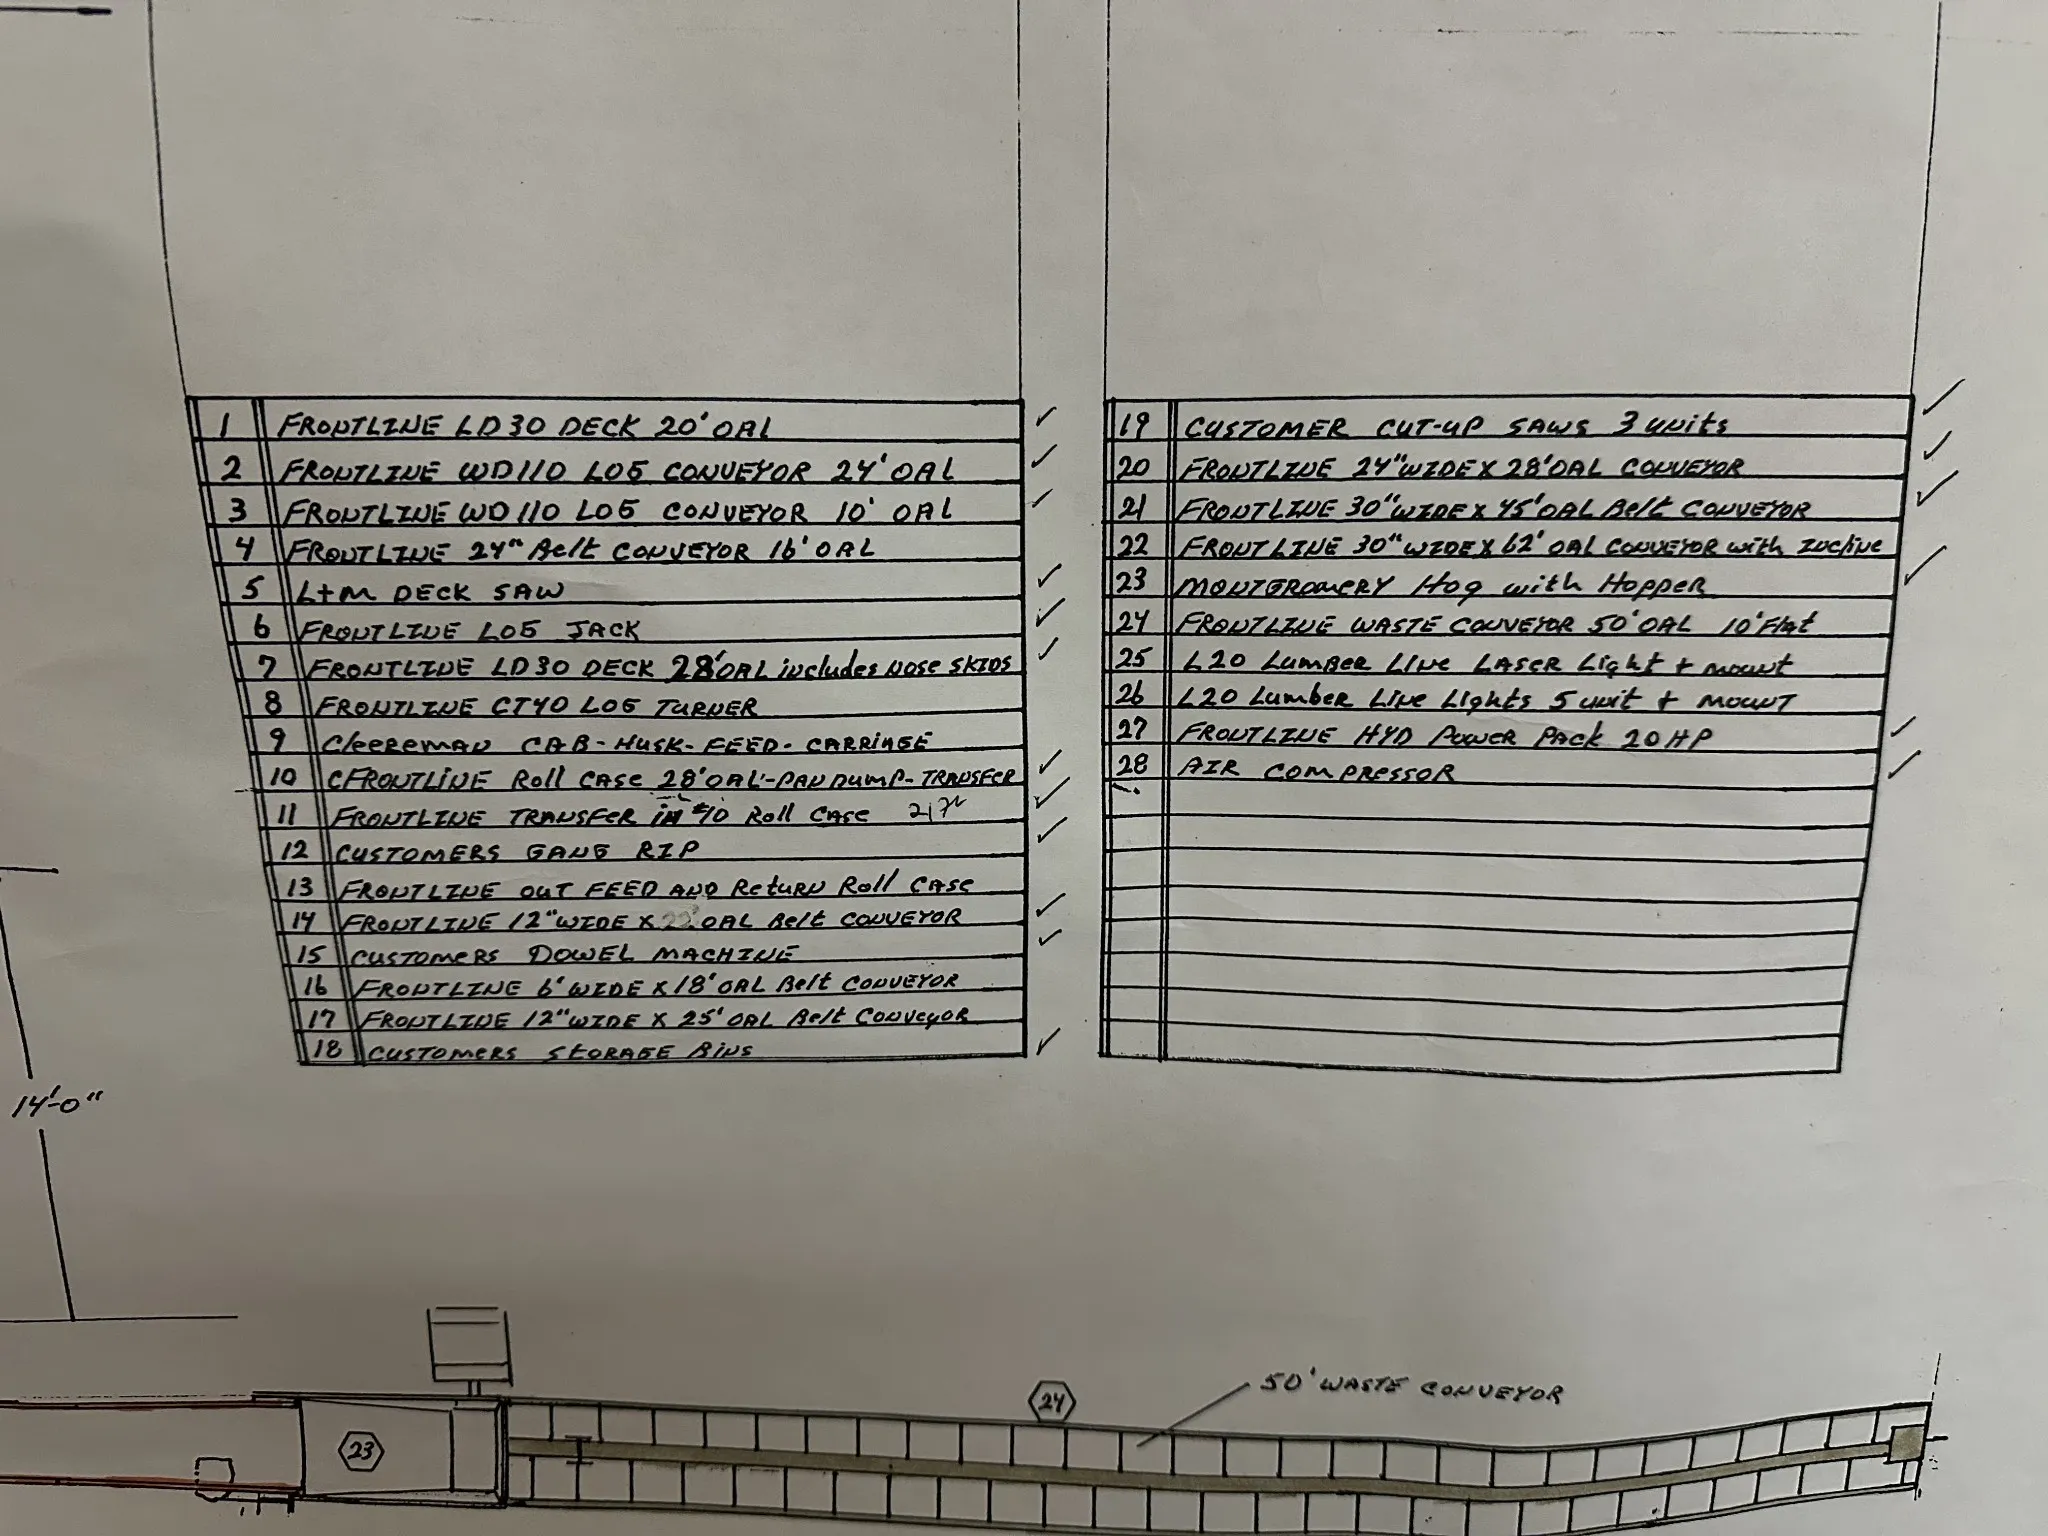 1 FRONTLINE LD30 DECK 20' OAL
2 FRONTLINE WD110 LOG CONVEYOR 24' OAL
3 FRONTLINE WD110 LOG CONVEYOR 10' OAL
4 FRONTLINE 24" Belt CONVEYOR 16' OAL
5 L+M DECK SAW
6 FRONTLINE LOG JACK
7 FRONTLINE LD30 DECK 28' OAL includes NOSE SKIDS
8 FRONTLINE CT40 LOG TURNER
9 Cleereman CAB-HUSK-FEED-CARRIAGE
10 FRONTLINE Roll CASE 28' OAL-PAN DUMP-TRANSFER
11 FRONTLINE TRANSFER Roll CASE
12 CUSTOMERS GANG RIP
13 FRONTLINE OUT FEED AND Return Roll CASE
14 FRONTLINE 12" WIDE X OAL Belt CONVEYOR
15 CUSTOMERS DOWEL MACHINE
16 FRONTLINE 6' WIDE X 18' OAL Belt CONVEYOR
17 FRONTLINE 12" WIDE X 25' OAL Belt Conveyor
18 CUSTOMERS STORAGE BINS
19 CUSTOMER CUT-UP SAWS 3 units
20 FRONTLINE 24" WIDE X 28' OAL CONVEYOR
21 FRONTLINE 30" WIDE X 45' OAL Belt CONVEYOR
22 FRONTLINE 30" WIDE X 62' OAL CONVEYOR with Incline
23 MONTGROMERY Hog with Hopper
24 FRONTLINE WASTE CONVEYOR 50' OAL 10' Flat
25 L20 Lumber Line LASER Light + mount
26 L20 Lumber Line Lights 5 unit + MOUNT
27 FRONTLINE HYD POWER PACK 20 HP
28 AIR COMPRESSOR
14'-0"
24
50' WASTE CONVEYOR
23